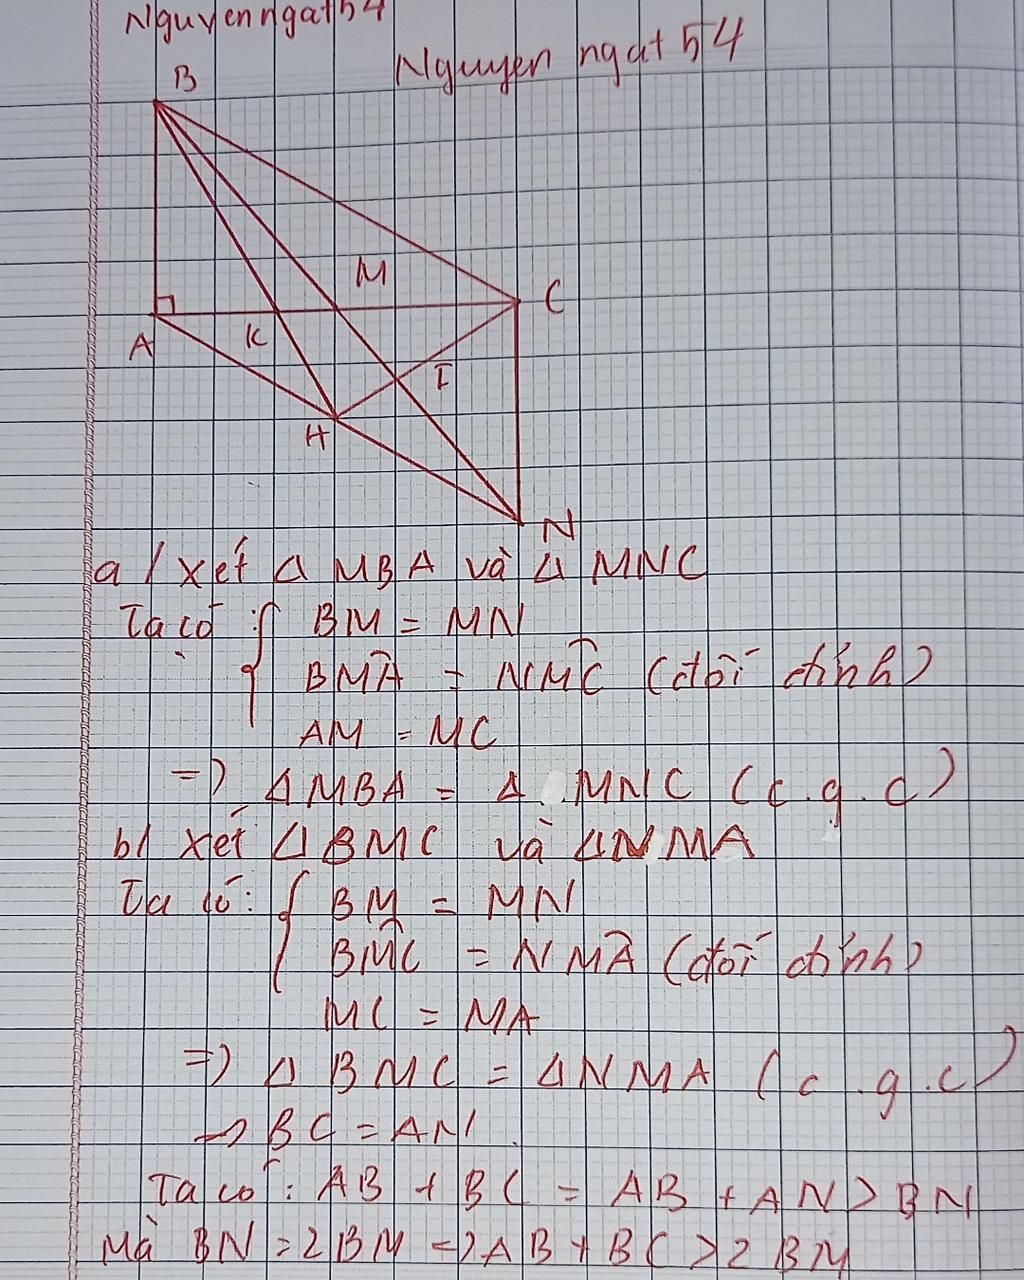 Nguyenngat54
Nguyen ngat 54
B
M
C
A
K
I
H
N
a / xét Δ MBA và Δ MNC
Ta có : { BM = MN
BMA = NMC (đối đỉnh)
AM = MC
=> ΔMBA = Δ MNC (c.g.c)
b/ xét ΔBMC và ΔNMA
Ta có: { BM = MN
BMC = NMA (đối đỉnh)
MC = MA
=> Δ BMC = ΔNMA (c.g.c)
=> BC = AN
Ta có : AB + BC = AB + AN > BN
Mà BN = 2BM => AB + BC > 2 BM